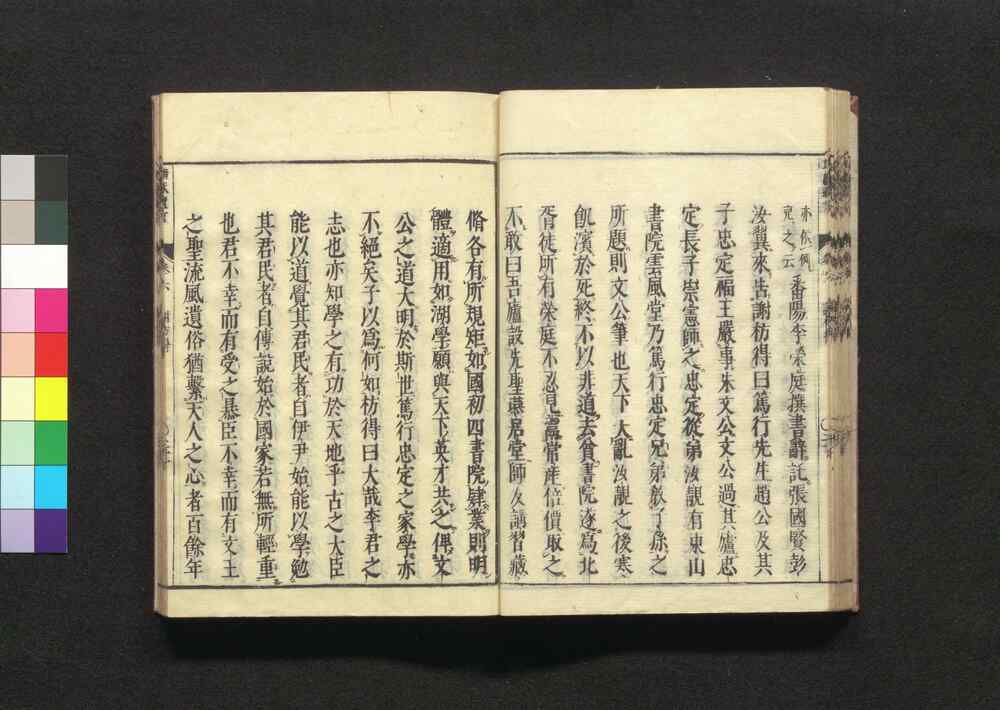 亦依例
究之云
番陽李榮庭撰書辭託張國賢彭
汝翼來告謝枋得曰篤行先生趙公及其
子忠定福王嚴事朱文公文公過其廬忠
定長子崇憲師之忠定從弟汝靚有東山
書院雲風堂乃篤行忠定兄弟教子孫之
所題則文公筆也天下大亂汝靚之後寒
飢濱於死終不以非道去貧書院遂為北
胥徒所有榮庭不忍見鬻常產倍價取之
不敢曰吾廬設先聖燕居堂師友講習藏
脩各有所規矩如國初四書院肄業則明
體適用如湖學願與天下英才共之俾文
公之道大明於斯世篤行忠定之家學亦
不絕矣子以為何如枋得曰大哉李君之
志也亦知學之有功於天地乎古之大臣
能以道覺其君民者自伊尹始能以學勉
其君民者自傅說始於國家若無所輕重
也君不幸而有受之慕臣不幸而有文王
之聖流風遺俗猶繫天人之心者百餘年
卷六